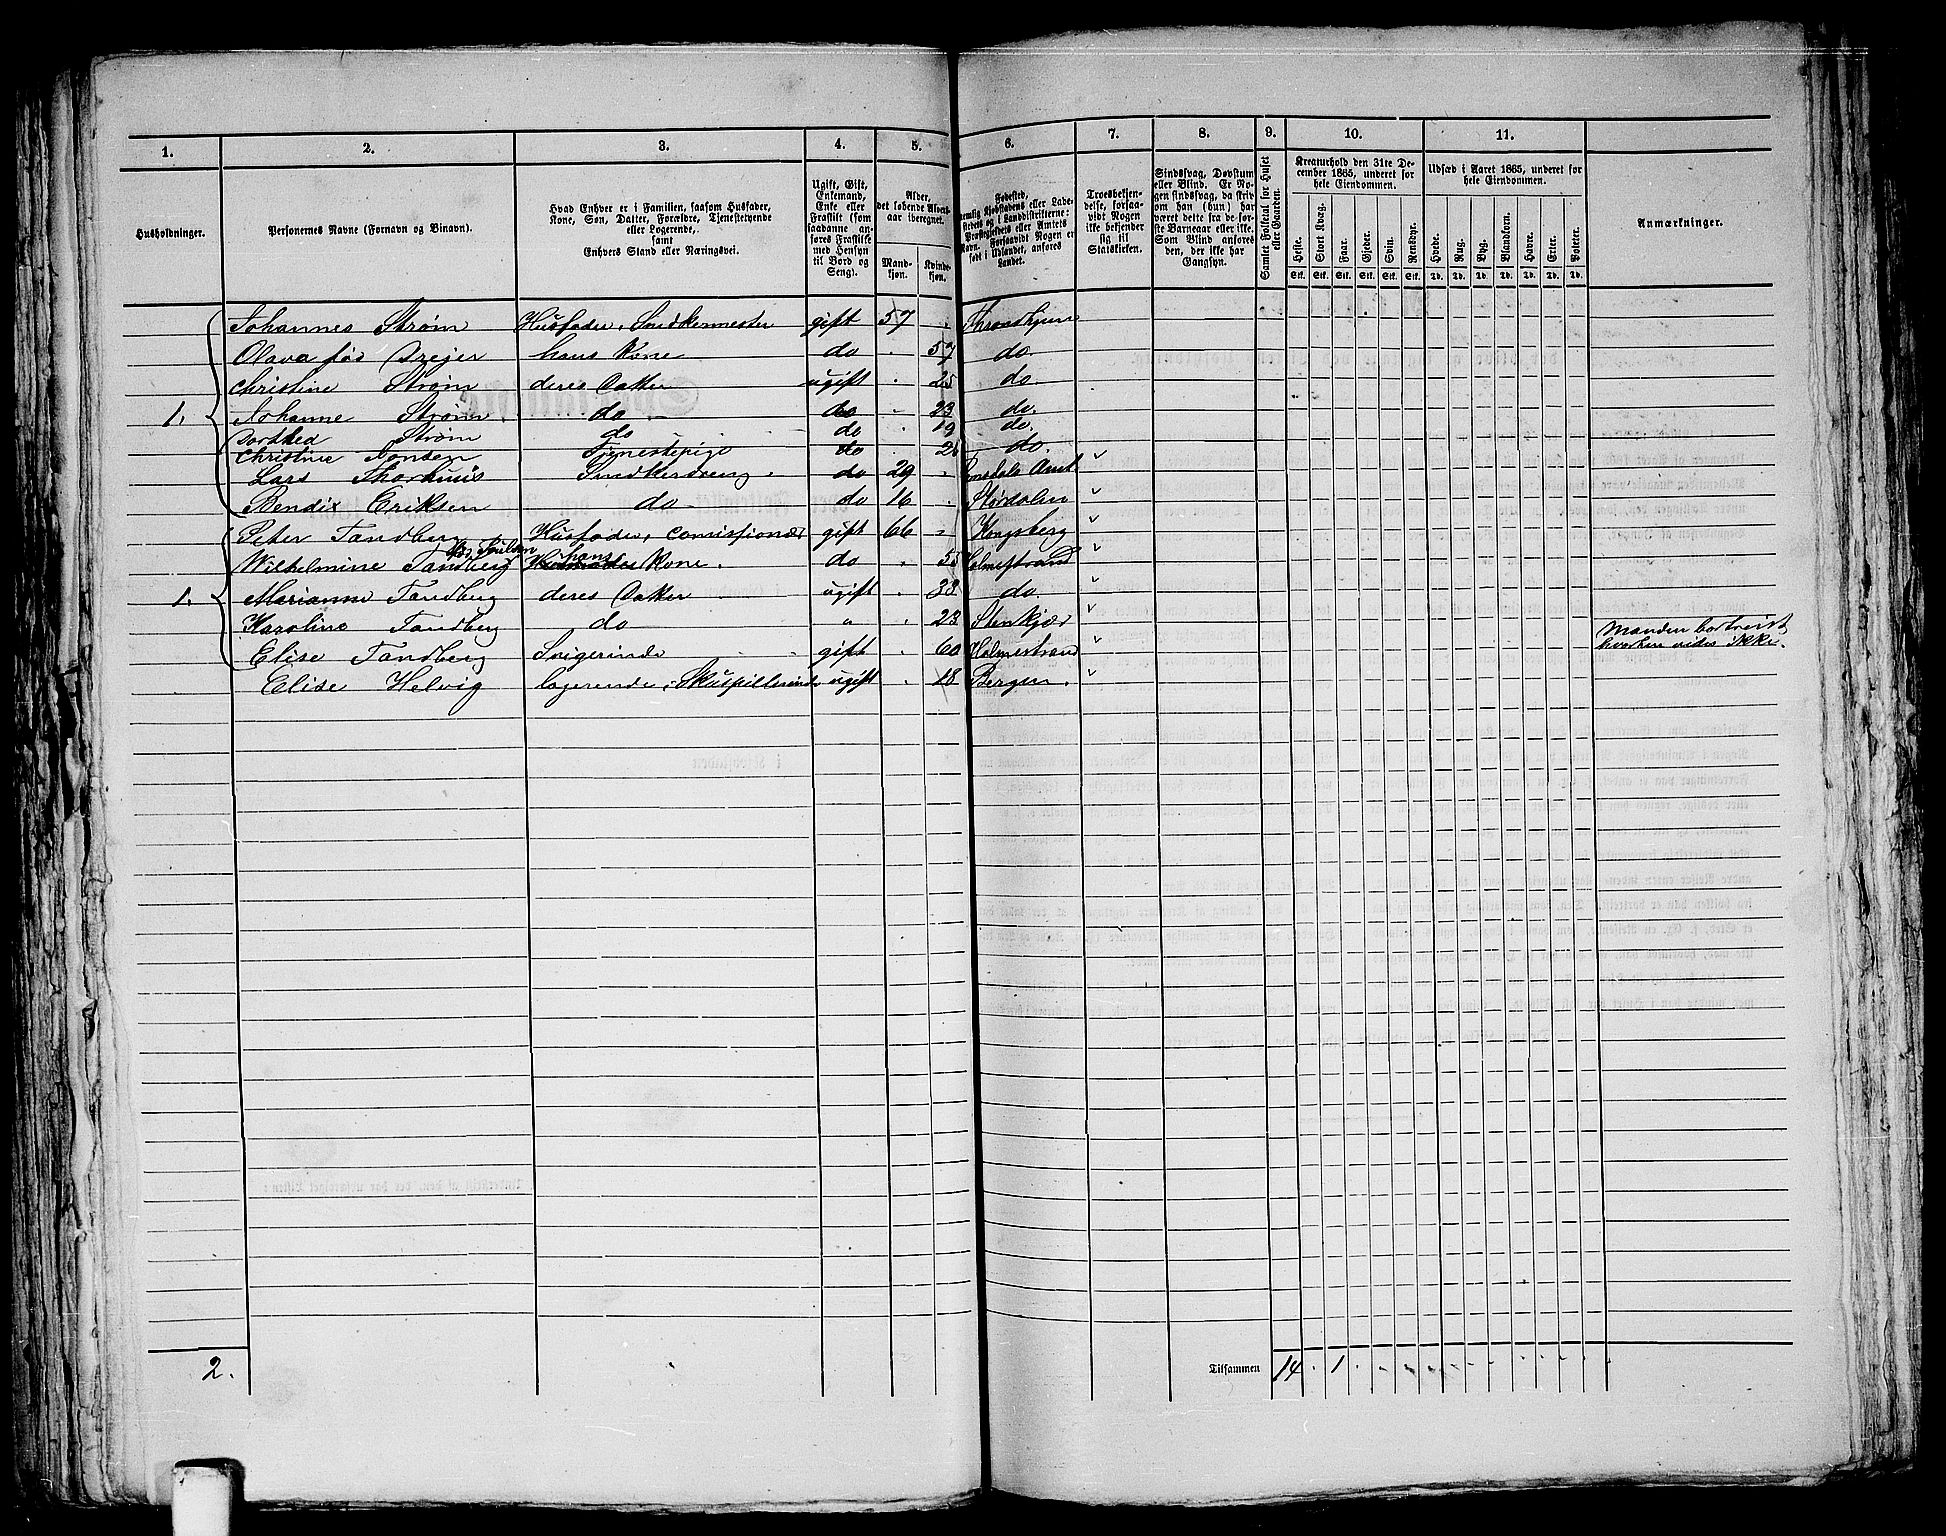 1. 2. 3. 4. 5. 6. 7. 8. 9. 10. 11.
Husholdninger.
Personernes Navne (Fornavn og Binavn).
Hvad Enhver er i Familien, saasom Husfader, Kone, Søn, Datter, Forældre, Tjenestetyende eller Logerende, samt Enhvers Stand eller Næringsvei.
Ugift, Gift, Enkemand, Enke eller Fraskilt (som saadanne anføres Fraskilte med Hensyn til Bord og Seng).
Alder, det løbende Alders-aar iberegnet.
Mandkjøn. Kvindekjøn.
Fødested, nemlig Kjøbstadens eller Ladestedets og i Landdistrikterne: Præstegjeldets eller Amtets Navn. Forsaavidt Nogen er født i Udlandet, anføres Landet.
Troesbekjendelse, forsaavidt Nogen ikke bekjender sig til Statskirken.
Sindssvag, Døvstum eller Blind. Er Nogen sindssvag, da skriv om han (hun) har været dette fra de første Barneaar eller ikke. Som Blind anføres den, der ikke har Gangsyn.
Samlet Folketal for Huset eller Gaarden.
Kreaturhold den 31te December 1865, underet for hele Eiendommen.
Heste. Stort Kvæg. Faar. Gjeder. Svin. Rensdyr.
Stk. Stk. Stk. Stk. Stk. Stk.
Udsæd i Aaret 1865, underet for hele Eiendommen.
Hvede. Rug. Byg. Blandkorn. Havre. Erter. Poteter.
Td. Td. Td. Td. Td. Td. Td.
Anmærkninger.
Johannes Strøm Husfader, Snedkermester gift 57 Throndhjem
Olava fød Drejer hans Kone do 57 do.
Christine Strøm deres Datter ugift 25 do.
1. Johanne Strøm do do 23 do.
Dorthea Strøm do do 19 do.
Christine Jonsen Tjenestepige do 26 do.
Lars Thorhuus Snedkerdreng do 29 Romsdals Amt
Bendix Eriksen do do 16 Størdalen
Peter Tandberg Husfader, comissionær gift 66 Kongsberg
Wilhelmine Tandberg hans Kone. do 55 Holmestrand
1. Marianne Tandberg deres Datter ugift 33 do.
Karoline Tandberg do " 23 Stenkjær
Elise Tandberg Svigerinde gift 60 Holmestrand Manden bortreist hvorhen vides ikke.
Elise Helvig logerende, Skuespillerinde ugift 18 Bergen.
2. Tilsammen 14 . 1